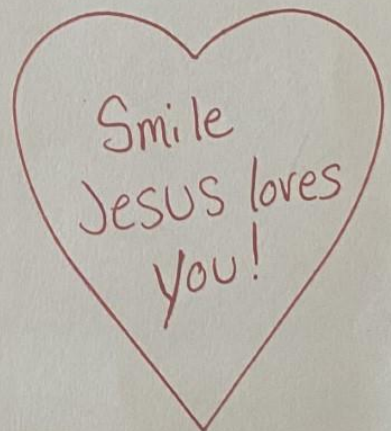 Smile
Jesus loves
you!